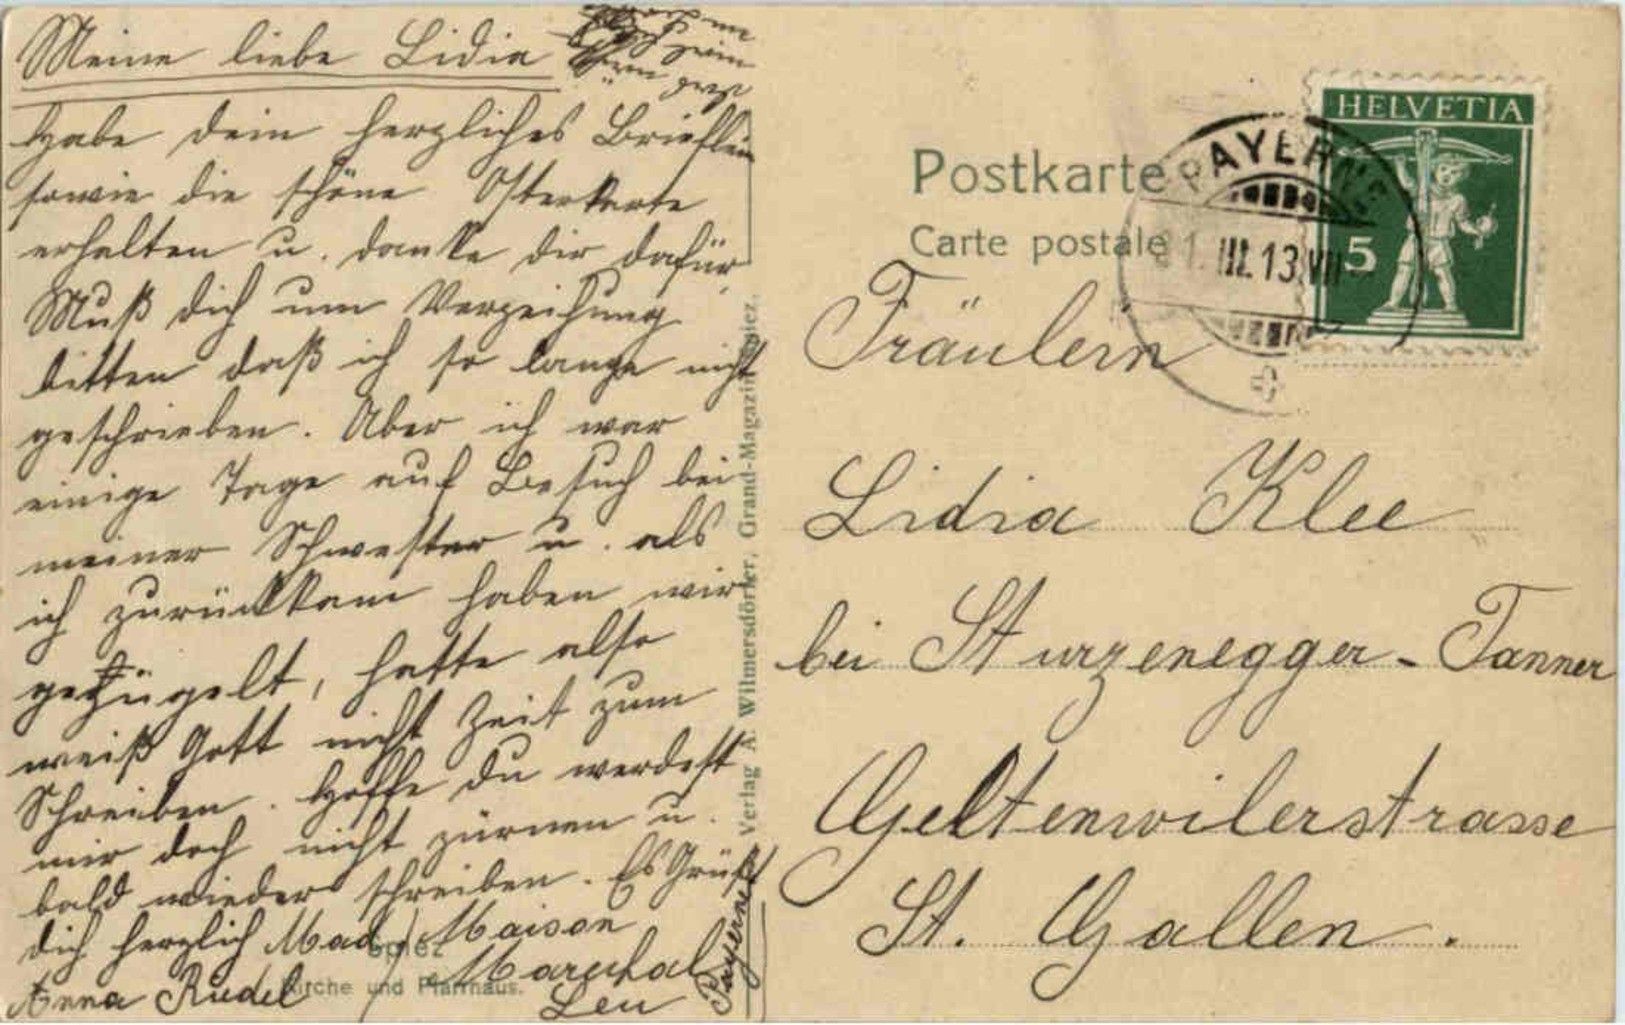 Meine liebe Lidia
Habe dein herzliches Brieflein
sowie die schöne Osterkarte
erhalten u. danke dir dafür
Muß dich um Verzeihung
bitten daß ich so lange nicht
geschrieben. Aber ich war
einige Tage auf Besuch bei
meiner Schwester u. als
ich zurückkam haben wir
gezügelt, hatte also
weiß Gott nicht Zeit zum
Schreiben. Hoffe du werdest
mir doch nicht zürnen u.
bald wieder schreiben. Es Grüßt
dich herzlich Mad. Maison
Anna Riedel
Payerne
Spiez
Kirche und Pfarrhaus.
Verlag A. Wilmersdörfer, Grand-Magazin, Spiez.
Postkarte
Carte postale
HELVETIA
5
PAYERNE
III.13.VII
Fräulein
Lidia Klee
bei Sturzenegger-Tanner
Geltenwilerstrasse
St. Gallen.